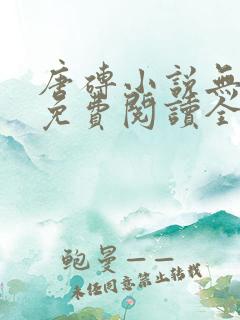 唐磚小說無
免費閱讀全
鲍曼——
未经同意禁止转载